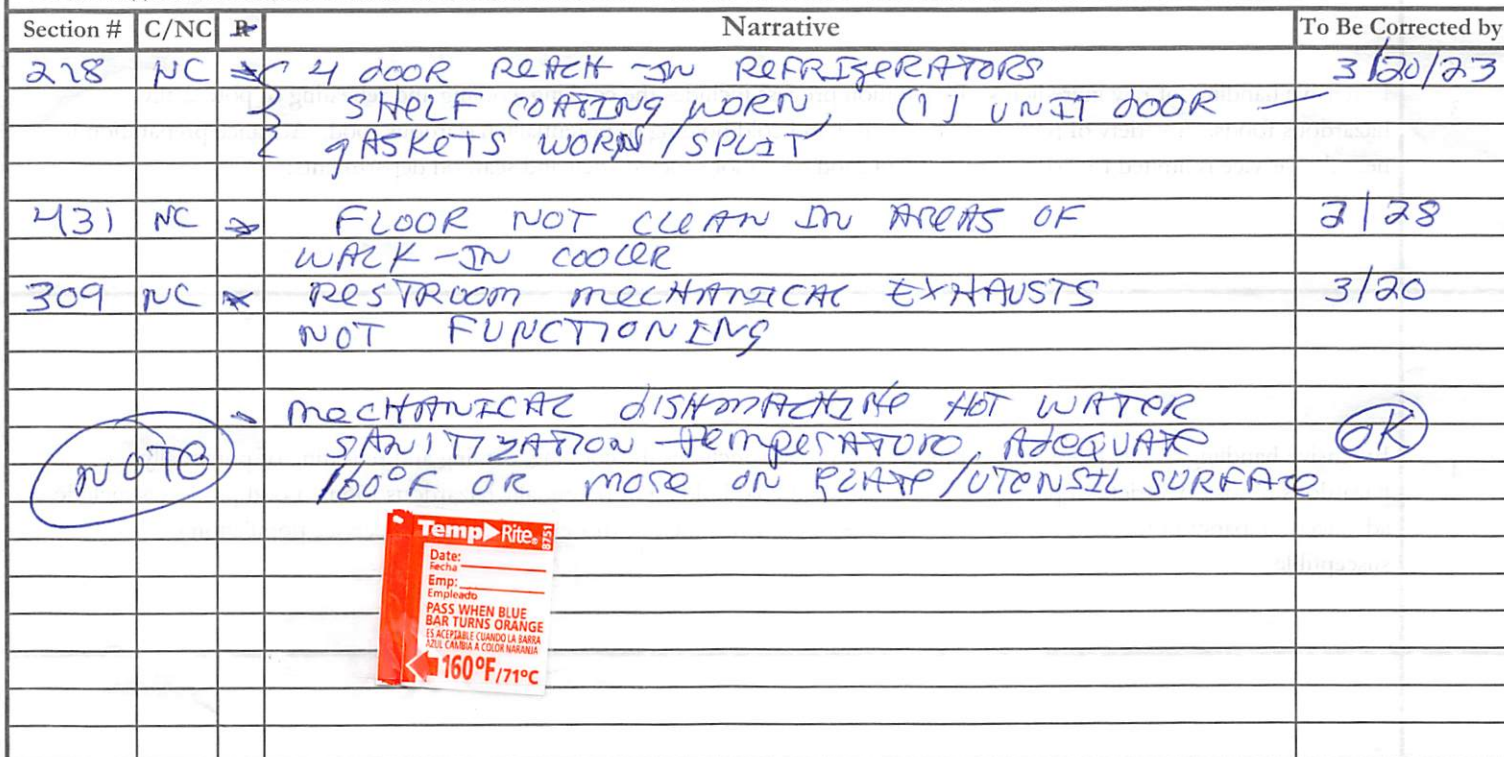 Section # C/NC R Narrative To Be Corrected by
228 NC 4 DOOR REACH-IN REFRIGERATORS 3/20/23
SHELF COATING WORN, (1) UNIT DOOR —
GASKETS WORN/SPLIT
431 NC FLOOR NOT CLEAN IN AREAS OF 2/28
WALK-IN COOLER
309 NC RESTROOM MECHANICAL EXHAUSTS 3/20
NOT FUNCTIONING
MECHANICAL DISHMACHINE HOT WATER
SANITIZATION TEMPERATURE ADEQUATE OK
NOTE 160°F OR MORE ON PLATE/UTENSIL SURFACE
Temp Rite® 8751
Date:
Fecha
Emp:
Empleado
PASS WHEN BLUE
BAR TURNS ORANGE
ES ACEPTABLE CUANDO LA BARRA
AZUL CAMBIA A COLOR NARANJA
160°F/71°C